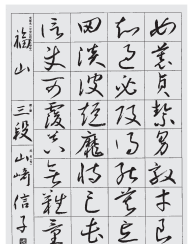 女慕貞絜男效才良
知過必改得能莫忘
罔談彼短靡恃己長
信使可覆器欲難量
福山 三段 山崎信子